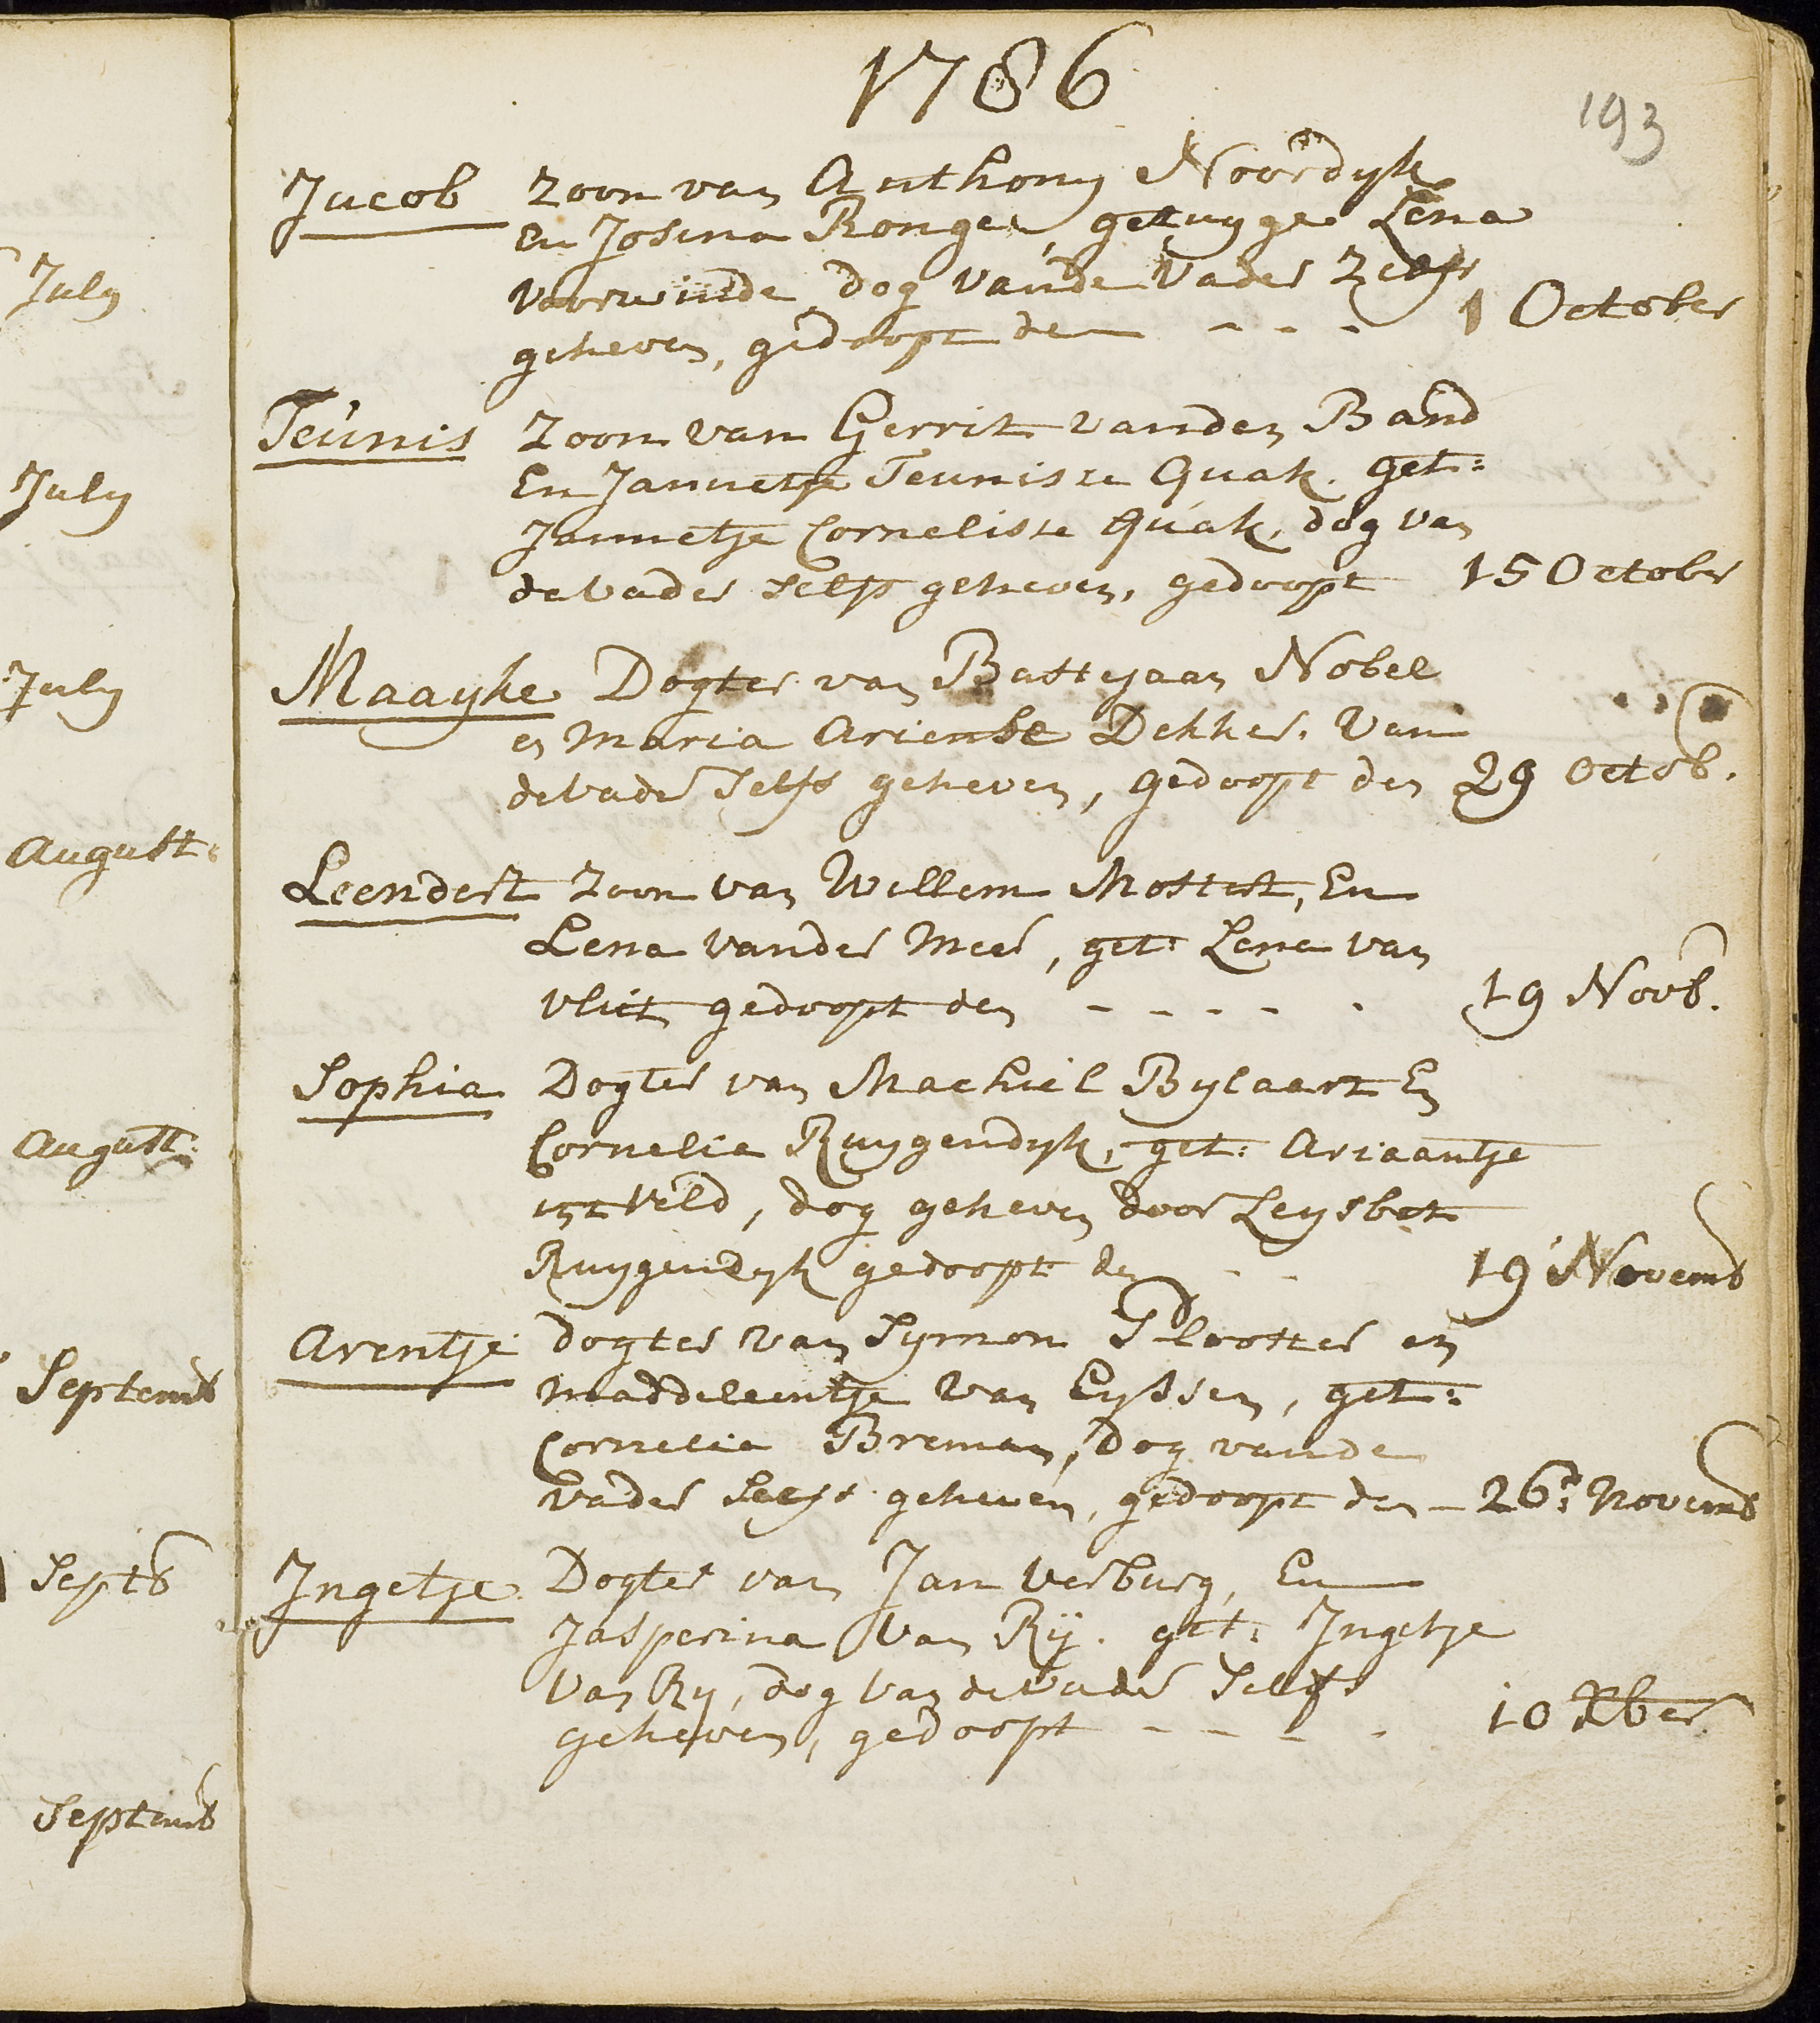 July
July
July
August:
August:
Septemb
Septb
Septemb
1786
193
Jacob Zoon van Anthony Noordyk
En Josina Ronge, getuyge Lena
Voorwinde, dog vande Vader Zelfs
geheven, gedoopt den - - - 1 October
Teunis Zoon van Gerrit vanden Band
En Jannetje Teunisse Quak. get:
Jannetje Cornelisse Quak, dog van
de Vader selfs geheven, gedoopt 15 October
Maayke Dogter van Bastejaan Nobel
en Maria Ariense Dekker. Van
de Vader selfs geheven, gedoopt den 29 Octob.
Leendert Zoon van Willem Mostert, En
Lena vander Meer, get: Lena van
Vliet gedoopt den - - - - - 19 Novb.
Sophia Dogter van Machiel Bylaart En
Cornelia Ruygendyk, get: Ariaantje
int Veld, dog geheven door Leysbet
Ruygendyk gedoopt den - - 19 Novemb
Arentje dogter van Symon Plooster en
Maddeleentje van Eyssen, get:
Cornelia Breman, Dog vande
Vader selfs geheven, gedoopt den - 26e: Novemb
Ingetje Dogter van Jan Verburg, En
Jasperina van Rij. get: Ingetje
Van Ry, dog van de Vader Selfs
geheven, gedoopt - - - - 10 Xber.